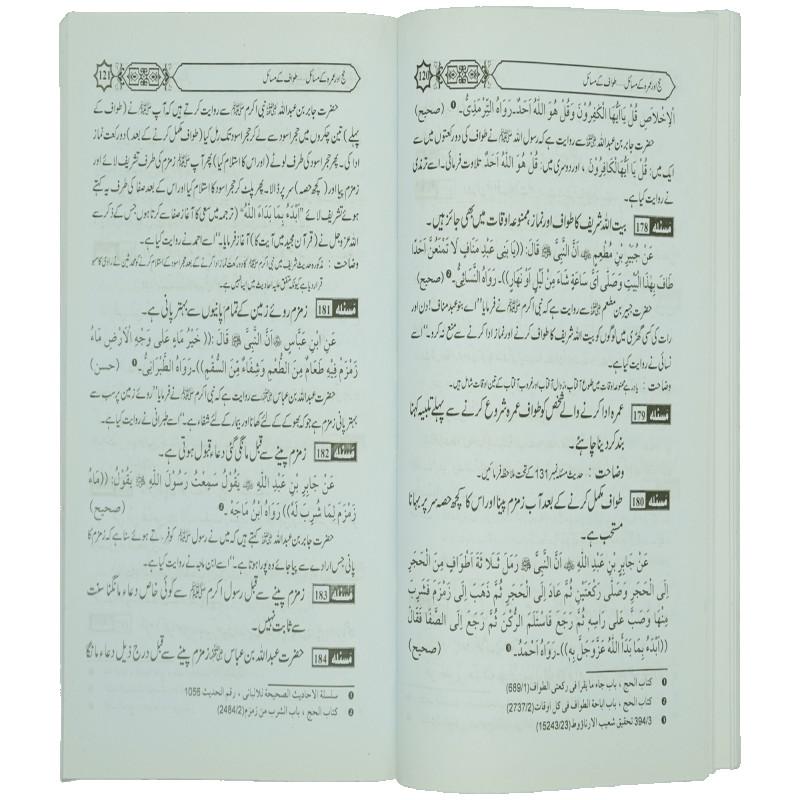 120
حج اور عمرہ کے مسائل.....طواف کے مسائل
الْاِخْلَاصِ قُلْ يٰاَيُّهَا الْكٰفِرُوْنَ وَقُلْ هُوَ اللّٰهُ اَحَدٌ۔ رَوَاهُ التِّرْمِذِيُّ۔❶ (صحیح)
حضرت جابر بن عبداللہ ﷺ سے روایت ہے کہ رسول اللہ ﷺ نے طواف کی دو رکعتوں میں سے
ایک میں: قُلْ يَا اَيُّهَا الْكَافِرُوْنَ ، اور دوسری میں: قُلْ هُوَ اللّٰهُ اَحَدٌ تلاوت فرمائی۔ اسے ترمذی
نے روایت کیا ہے۔
مسئلہ 178 بیت اللہ شریف کا طواف اور نماز، ممنوعہ اوقات میں بھی جائز ہیں۔
عَنْ جُبَيْرِ بْنِ مُطْعِمٍ اَنَّ النَّبِيَّ ﷺ قَالَ: ((يَا بَنِي عَبْدِ مَنَافٍ لَا تَمْنَعُنَّ اَحَدًا
طَافَ بِهٰذَا الْبَيْتِ وَصَلّٰى اَيَّ سَاعَةٍ شَاءَ مِنْ لَيْلٍ اَوْ نَهَارٍ))۔ رَوَاهُ النَّسَائِيُّ۔❷ (صحیح)
حضرت جبیر بن مطعم سے روایت ہے کہ نبی اکرم ﷺ نے فرمایا "اے بنو عبد مناف! دن اور
رات کی کسی گھڑی میں لوگوں کو بیت اللہ شریف کا طواف کرنے اور نماز ادا کرنے سے منع نہ کرو۔" اسے
نسائی نے روایت کیا ہے۔
وضاحت : یاد رہے ممنوعہ اوقات میں طلوع آفتاب، زوال آفتاب اور غروب آفتاب کے تین اوقات شامل ہیں۔
مسئلہ 179 عمرہ ادا کرنے والے شخص کو طواف عمرہ شروع کرنے سے پہلے تلبیہ کہنا
بند کر دینا چاہئے۔
وضاحت : حدیث مسئلہ نمبر 131 کے تحت ملاحظہ فرمائیں۔
مسئلہ 180 طواف مکمل کرنے کے بعد آب زمزم پینا اور اس کا کچھ حصہ سر پر بہانا
مستحب ہے۔
عَنْ جَابِرِ بْنِ عَبْدِ اللّٰهِ اَنَّ النَّبِيَّ ﷺ رَمَلَ ثَلَاثَةَ اَطْوَافٍ مِنَ الْحَجَرِ
اِلَى الْحَجَرِ وَصَلّٰى رَكْعَتَيْنِ ثُمَّ عَادَ اِلَى الْحَجَرِ ثُمَّ ذَهَبَ اِلٰى زَمْزَمَ فَشَرِبَ
مِنْهَا وَصَبَّ عَلٰى رَأْسِهِ ثُمَّ رَجَعَ فَاسْتَلَمَ الرُّكْنَ ثُمَّ رَجَعَ اِلَى الصَّفَا فَقَالَ
((اَبْدَءُ بِمَا بَدَأَ اللّٰهُ عَزَّوَجَلَّ بِهِ))۔ رَوَاهُ اَحْمَدُ۔❸ (صحیح)
❶ كتاب الحج ، باب جاء ما يقرا في ركعتي الطواف (689/1)
❷ كتاب الحج ، باب اباحة الطواف في كل اوقات (2737/2)
❸ 394/3 تحقيق شعيب الارناؤوط (15243/23)
121
حج اور عمرہ کے مسائل.....طواف کے مسائل
حضرت جابر بن عبداللہ ﷺ نبی اکرم ﷺ سے روایت کرتے ہیں کہ آپ ﷺ نے (طواف کے
پہلے) تین چکروں میں حجر اسود سے لے کر حجر اسود تک رمل کیا (طواف مکمل کرنے کے بعد) دو رکعت نماز
ادا کی۔ پھر حجر اسود کی طرف لوٹے (اور اس کا استلام کیا) پھر آپ ﷺ زمزم کی طرف تشریف لائے اور
زمزم پیا اور (کچھ حصہ) سر پر ڈالا۔ پھر پلٹ کر حجر اسود کا استلام کیا اور اس کے بعد صفا کی طرف یہ کہتے
ہوئے تشریف لائے "اَبْدَءُ بِمَا بَدَاءَ اللّٰهُ" (ترجمہ میں سعی کا آغاز صفا سے کرتا ہوں جس کے ذکر سے
اللہ عزوجل نے (قرآن مجید میں آیت کا) آغاز فرمایا۔" اسے احمد نے روایت کیا ہے۔
مسئلہ 181 زمزم روئے زمین کے تمام پانیوں سے بہتر پانی ہے۔
عَنِ ابْنِ عَبَّاسٍ اَنَّ النَّبِيَّ ﷺ قَالَ: ((خَيْرُ مَاءٍ عَلٰى وَجْهِ الْاَرْضِ مَاءُ
زَمْزَمَ فِيْهِ طَعَامٌ مِنَ الطُّعْمِ وَشِفَاءٌ مِنَ السُّقْمِ))۔ رَوَاهُ الطَّبَرَانِيُّ۔❶ (حسن)
حضرت عبداللہ بن عباس سے روایت ہے کہ نبی اکرم ﷺ نے فرمایا "روئے زمین پر سب سے
بہتر پانی زمزم ہے جو کہ بھوکے کے لئے کھانا اور بیمار کے لئے شفاء ہے۔" اسے طبرانی نے روایت کیا ہے۔
مسئلہ 182 زمزم پینے سے قبل مانگی گئی دعاء قبول ہوتی ہے۔
عَنْ جَابِرِ بْنِ عَبْدِ اللّٰهِ يَقُوْلُ سَمِعْتُ رَسُوْلَ اللّٰهِ ﷺ يَقُوْلُ: ((مَاءُ
زَمْزَمَ لِمَا شُرِبَ لَهُ)) رَوَاهُ ابْنُ مَاجَهْ۔❷ (صحیح)
حضرت جابر بن عبداللہ کہتے ہیں کہ میں نے رسول اللہ ﷺ کو فرماتے ہوئے سنا ہے کہ زمزم کا
پانی جس ارادے سے پیا جائے وہ پورا ہوتا ہے۔" اسے ابن ماجہ نے روایت کیا ہے۔
مسئلہ 183 زمزم پینے سے قبل رسول اکرم ﷺ سے کوئی خاص دعاء مانگنا سنت
سے ثابت نہیں۔
مسئلہ 184 حضرت عبداللہ بن عباس زمزم پینے سے قبل درج ذیل دعاء مانگا
❶ سلسلة الاحاديث الصحيحة للالباني ، رقم الحديث 1056
❷ كتاب الحج ، باب الشرب من زمزم (2484/2)